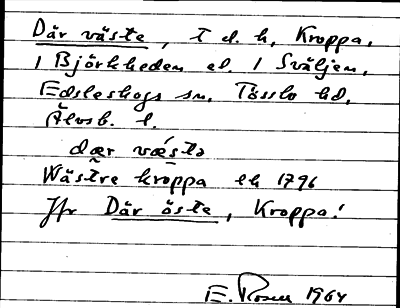 Där väste, t d. h. Kroppa,
1 Björkheden el. 1 Sväljen,
Edsleskogs sn. Tössbo hd,
Älvsb. l.
dær væ̀stə
Wästre kroppa ek 1796
Jfr Där öste, Kroppa!
E. Rosen 1964